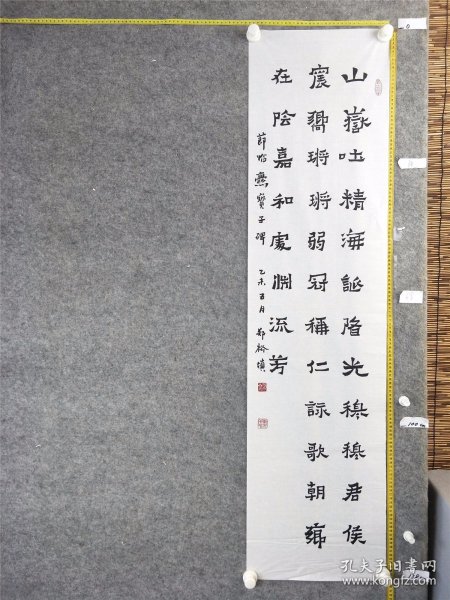 山嶽吐精海誕陼光穆穆君侯
宸響鏘鏘弱冠稱仁詠歌朝鄉
在陰嘉和處淵流芳
節臨爨寶子碑 乙未百月 鄭
0
100cm
孔夫子旧书网
www.kongfz.com